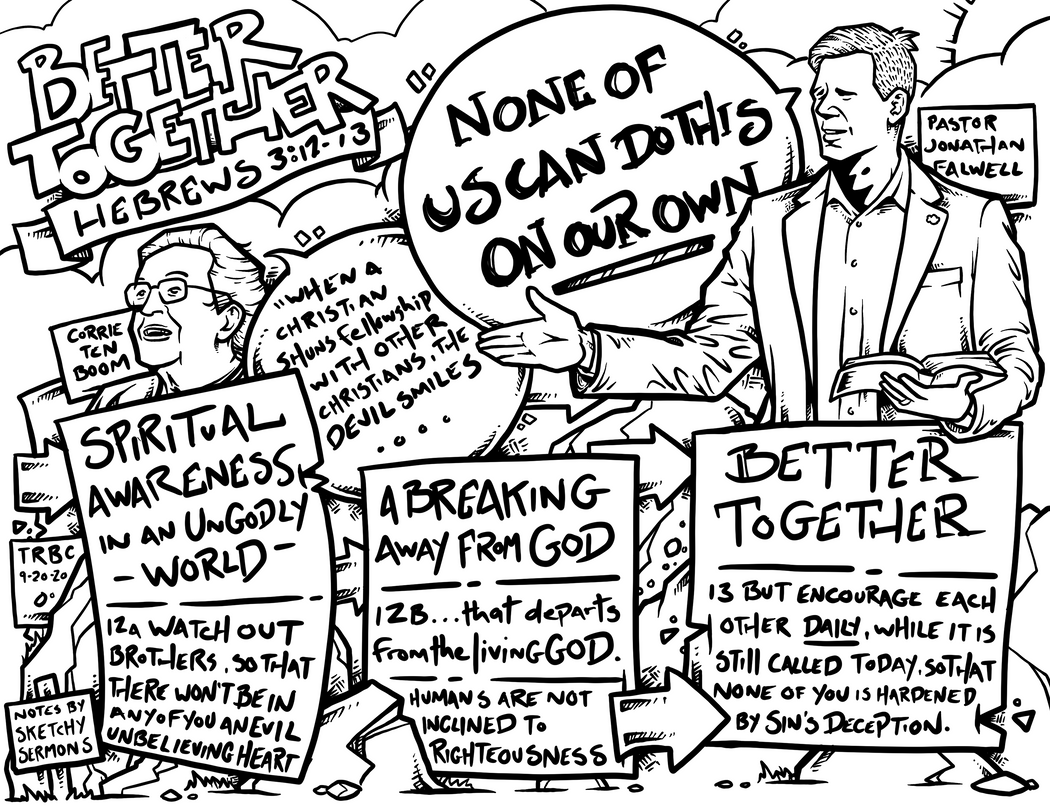 BETTER
TOGETHER
HEBREWS 3:12-13
NONE OF
US CAN DO THIS
ON OUR OWN
PASTOR
JONATHAN
FALWELL
CORRIE
TEN
BOOM
"WHEN A
CHRISTIAN
SHUNS Fellowship
WITH OTHER
CHRISTIANS, THE
DEVIL SMILES
....
SPIRITUAL
AWARENESS
IN AN UNGODLY
- WORLD -
12A WATCH OUT
BROTHERS, SO THAT
THERE WON'T BE IN
ANY OF YOU AN EVIL
UNBELIEVING HEART
A BREAKING
AWAY FROM GOD
12B...that departs
from the living GOD.
HUMANS ARE NOT
INCLINED TO
RIGHTEOUSNESS
BETTER
TOGETHER
13 BUT ENCOURAGE EACH
OTHER DAILY, WHILE IT IS
STILL CALLED TODAY, SO THAT
NONE OF YOU IS HARDENED
BY SIN'S DECEPTION.
TRBC
9-20-20
NOTES BY
SKETCHY
SERMONS